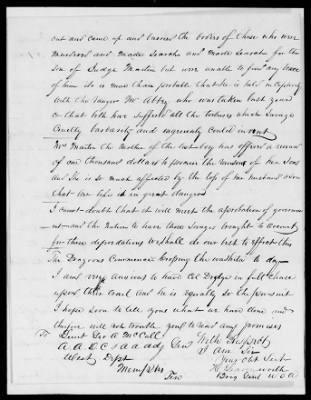 out and came up and buried the bodies of those who were
murdered and made search and made search for the
son of Judge Martin but were unable to find any trace
of him. It is more than probable that he is held in captivity
with the ranger Mr Abbey who was taken last year
or that both have suffered all the tortures which savage
cruelty barbarity and ingenuity could invent
Mrs Martin the mother of the lost boy has offered a reward
of one thousand dollars to procure the return of her son
and she is so much affected by the loss of her husband & son
that her life is in great danger
I cannot doubt that it will meet the approbation of government
and the nation to have those savages brought to account
for these depredations We shall do our best to effect this
The Dragoons commence crossing the washita to day
I am very anxious to have Col Dodge in full chase
upon their trail and he is equally so the pursuit
I hope soon to tell you what we have done and
therefore will not trouble you to read any promises
To Lieut Geo A McCall With Respect
A. A. D. C & a a adj Genl I am Sir
West Dept your obt Servt
Memphis H Leavenworth
Ten Brig Genl U S A